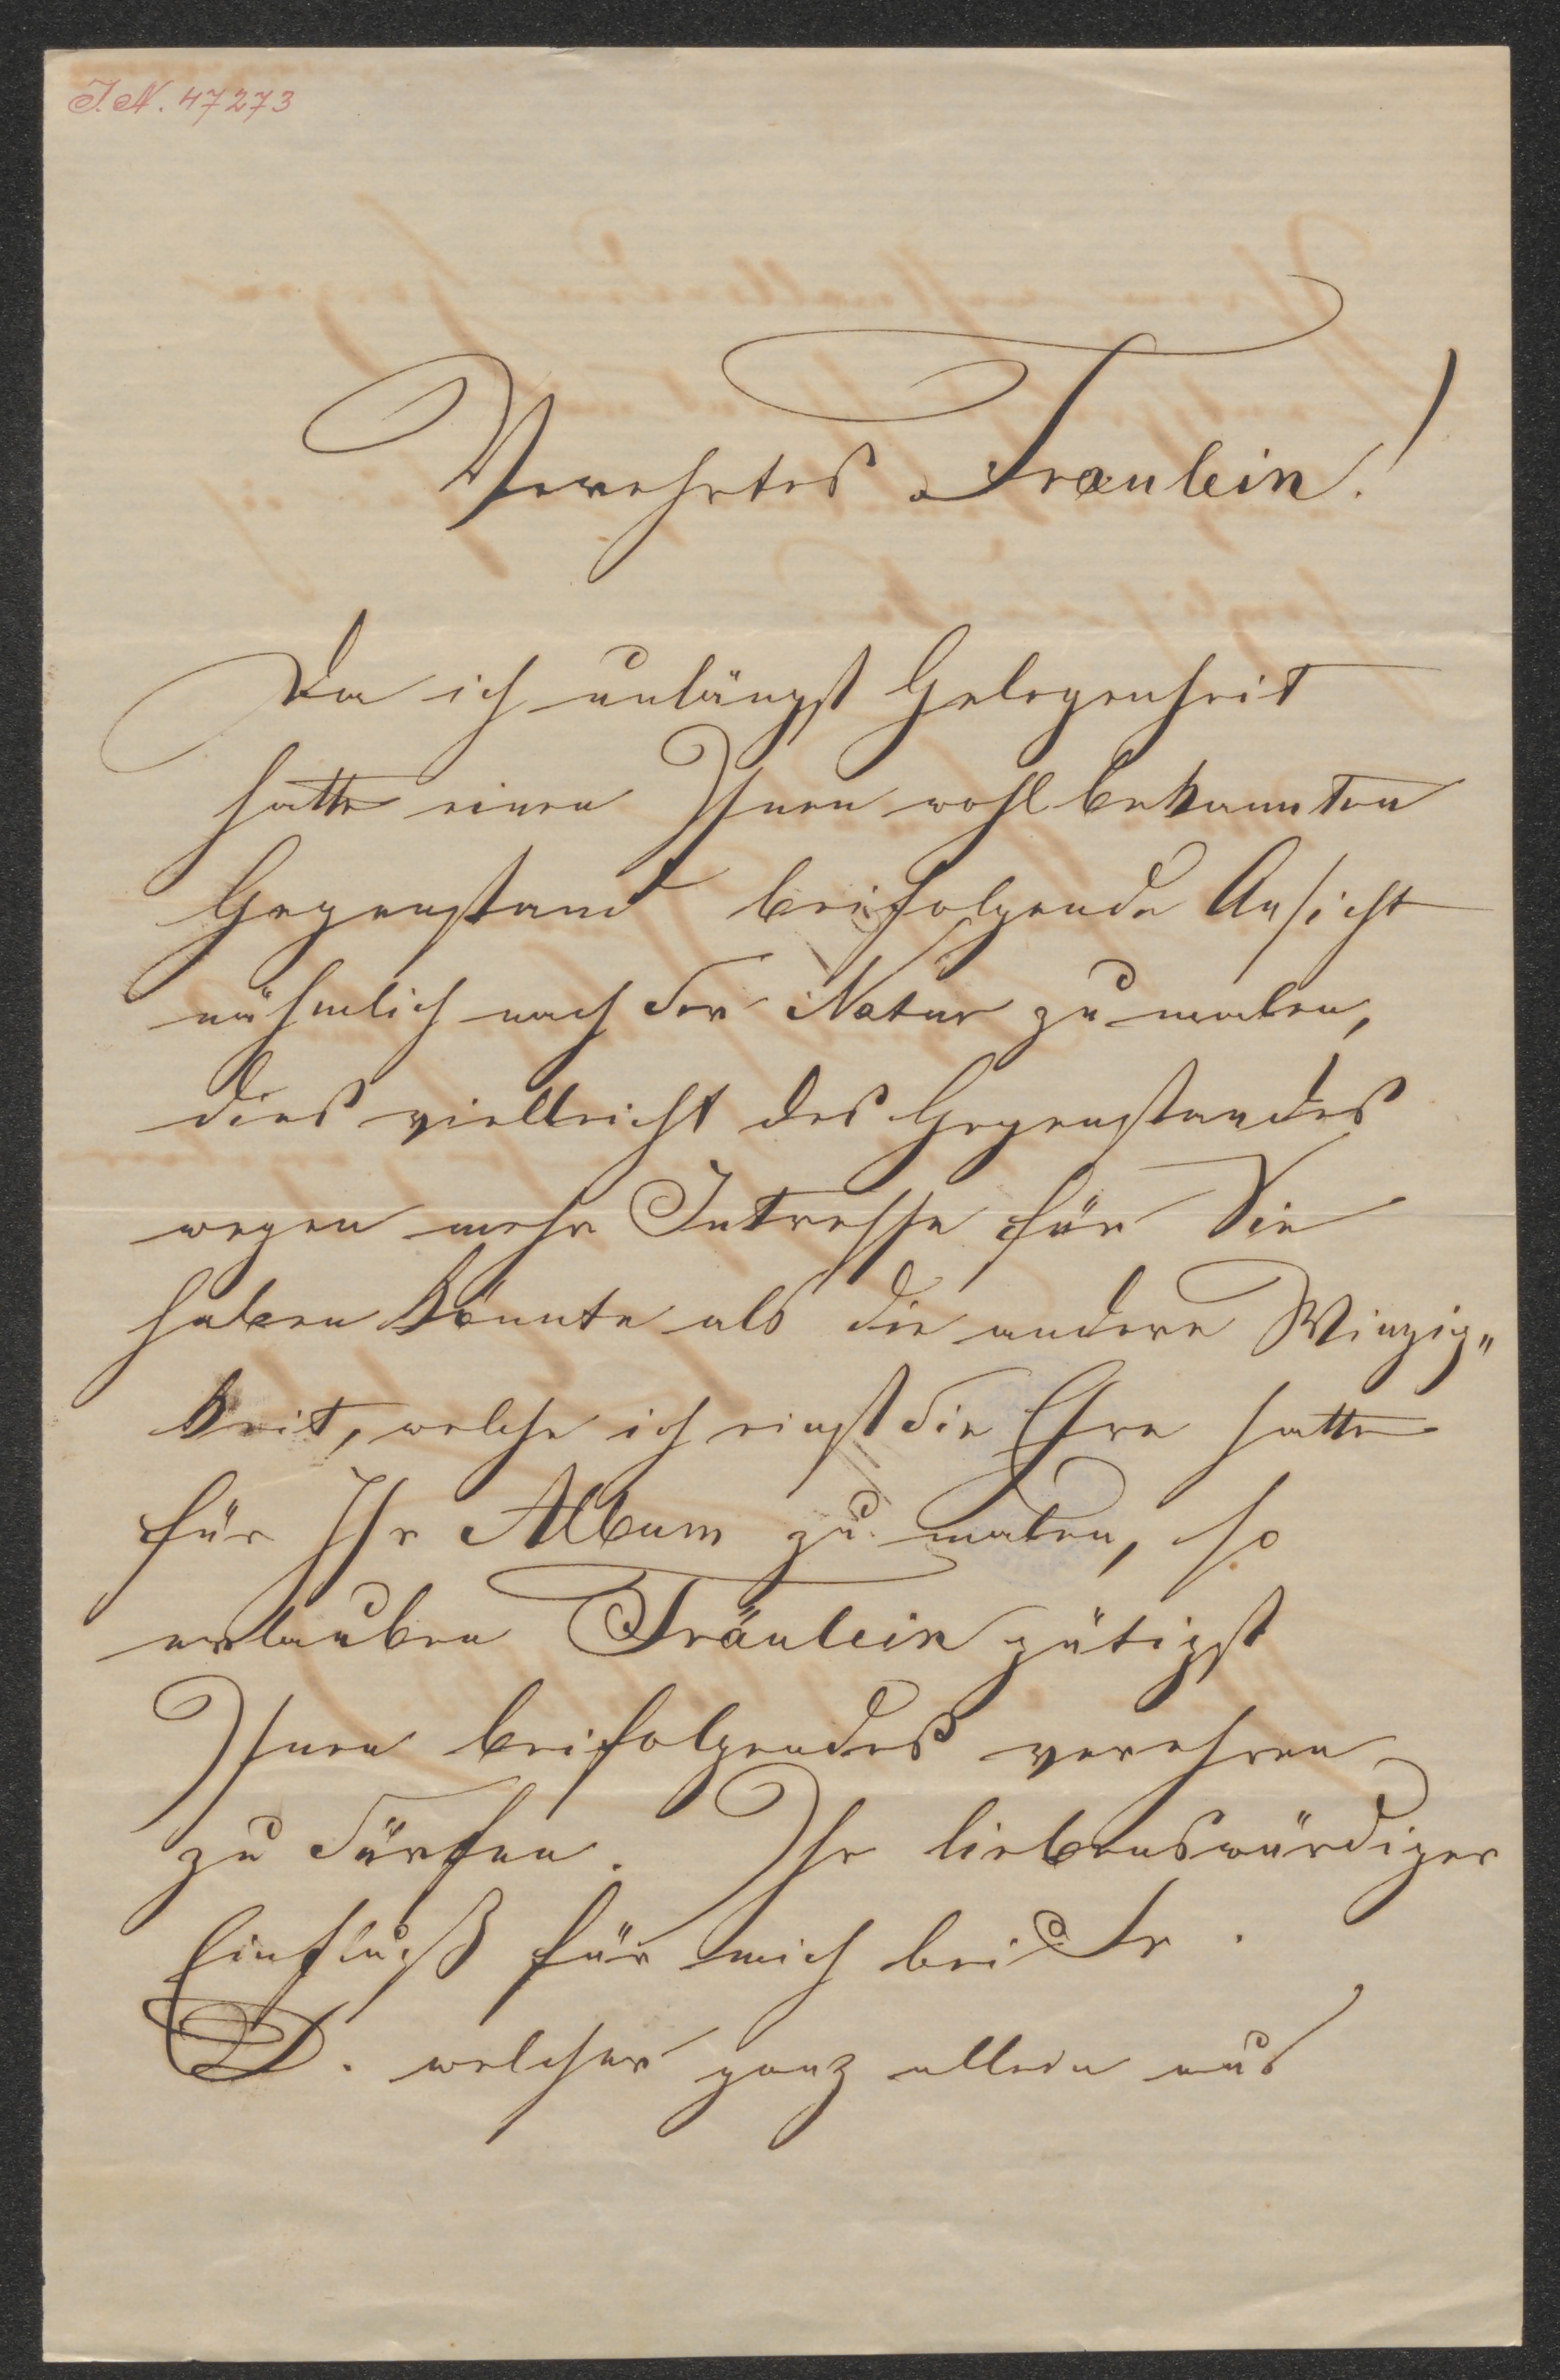 I.N. 47273
Verehrtes Fraulein!
Da ich unlängst Gelegenheit
hatte einen Ihnen wohl bekannten
Gegenstand beifolgende Ansicht
nähmlich nach der Natur zu malen,
dies vielleicht des Gegenstandes
wegen mehr Intresse für Sie
haben könnte als die andere Winzig„
keit, welche ich einst die Ehre hatte
für Ihr Album zu malen, so
erlauben Fräulein gütigst
Ihnen beifolgendes verehren
zu dürfen. Ihr liebenswürdiger
Einfluß für mich bei Fr.
D. welcher ganz allein aus